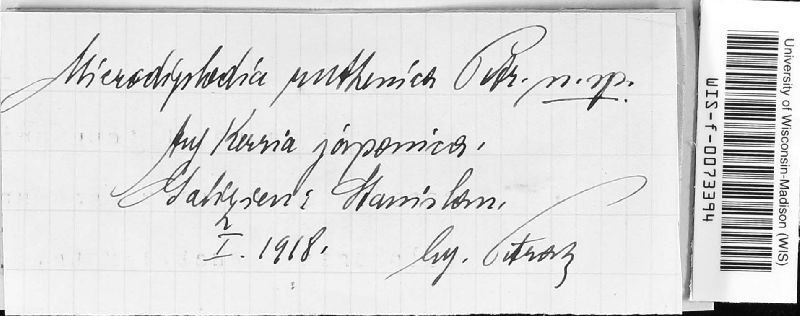 Microdiplodia ruthenica Petr. n. sp.
Auf Kerria japonica.
Galizien: Stanislau.
2/I. 1918. lg. Petrak
University of Wisconsin-Madison (WIS)
WIS-f-0073394